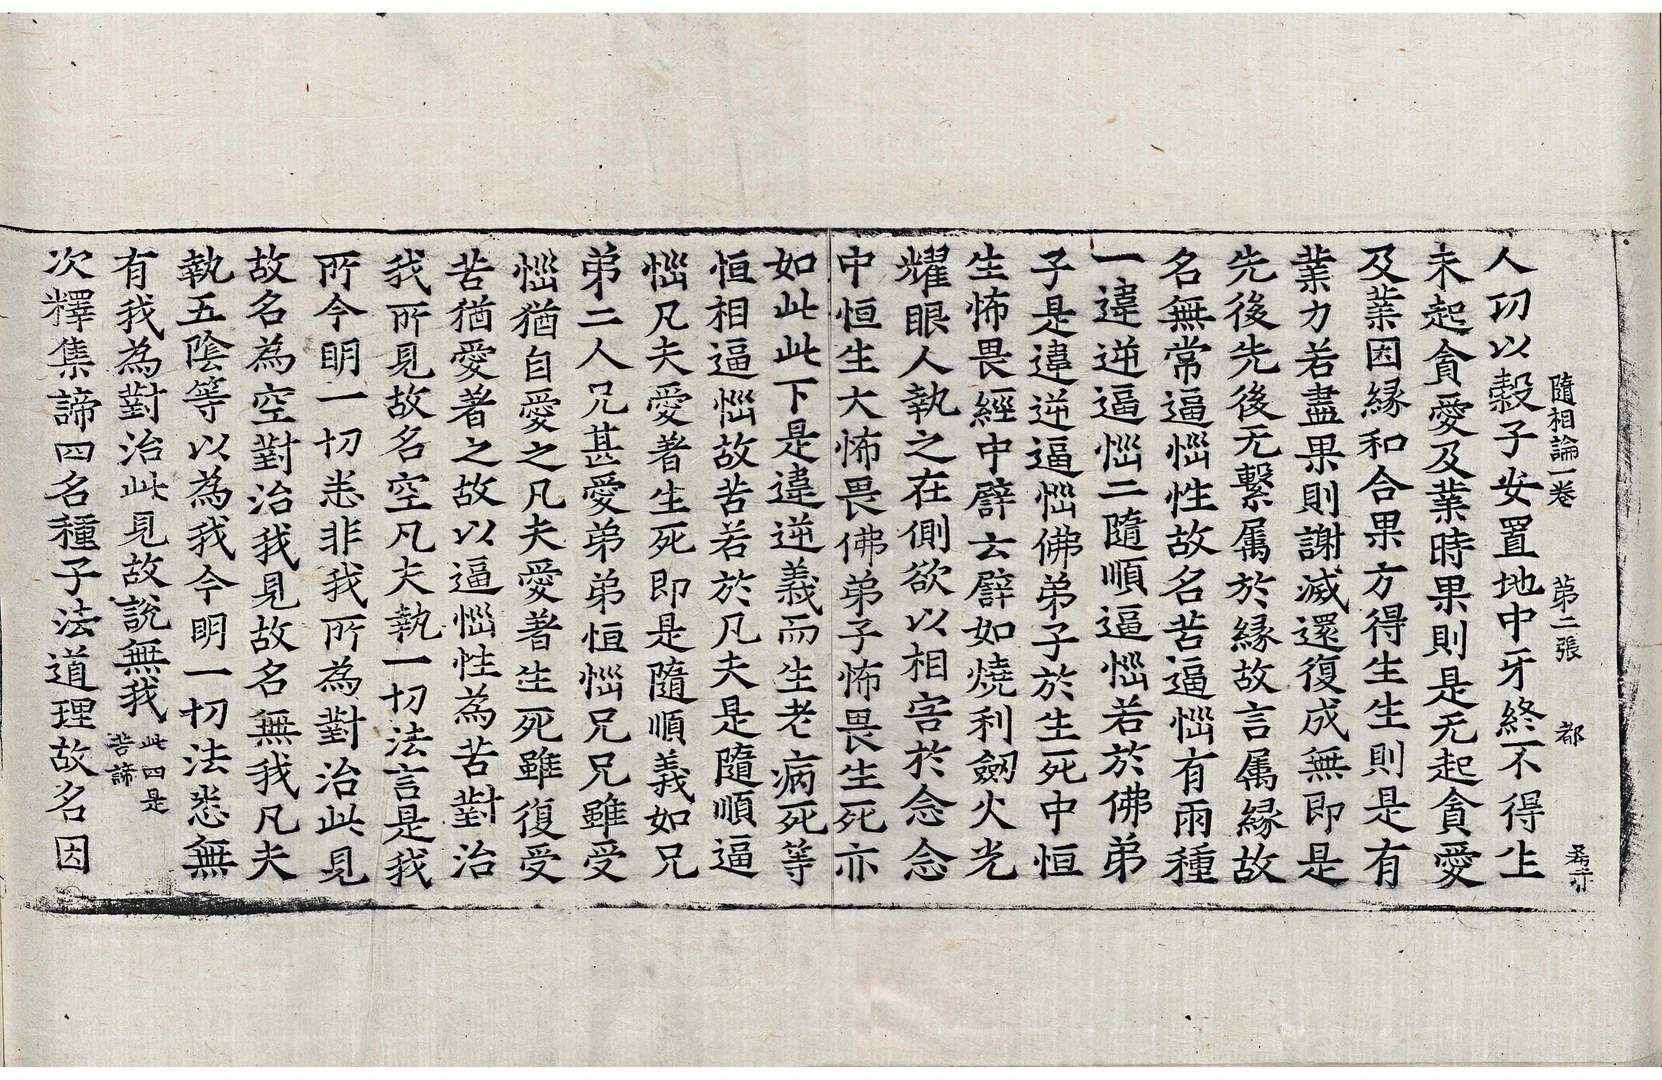 隨相論一卷　第二張　都
人功以穀子安置地中牙終不得生
未起貪愛及業時果則是无起貪愛
及業因縁和合果方得生生則是有
業力若盡果則謝滅還復成無即是
先後先後无繫属於縁故言属縁故
名無常逼惱性故名苦逼惱有兩種
一違逆逼惱二隨順逼惱若於佛弟
子是違逆逼惱佛弟子於生死中恒
生怖畏經中譬云譬如燒利劔火光
耀眼人執之在側欲以相害於念念
中恒生大怖畏佛弟子怖畏生死亦
如此此下是違逆義而生老病死等
恒相逼惱故苦若於凡夫是隨順逼
惱凡夫愛著生死即是隨順義如兄
弟二人兄甚愛弟弟恒惱兄兄雖受
惱猶自愛之凡夫愛著生死雖復受
苦猶愛著之故以逼惱性為苦對治
我所見故名空凡夫執一切法言是我
所今明一切悉非我所為對治此見
故名為空對治我見故名無我凡夫
執五陰等以為我今明一切法悉無
有我為對治此見故說無我此四是苦諦
次釋集諦四名種子法道理故名因